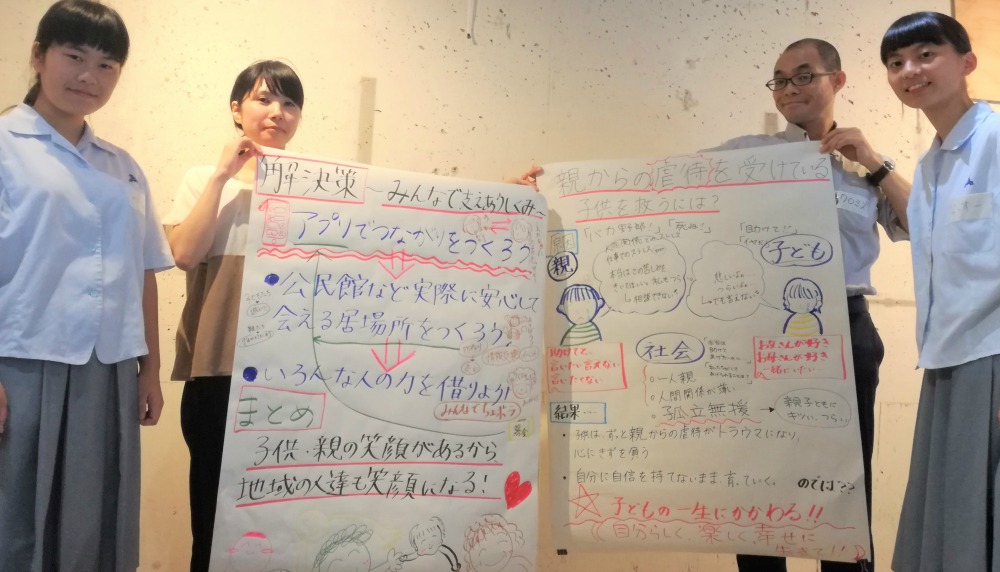 解決策
～みんなで支えあうしくみ～
アプリでつながりをつくろう
●公民館など実際に安心して
会える居場所をつくろう
●いろんな人の力を借りよう!
みんなでちょボラ
募金
まとめ
子供・親の笑顔があるから
地域の人達も笑顔になる!
親からの虐待を受けている
子供を救うには?
「バカ野郎!」「死ね!」
「助けて!!」
親
人間関係でのストレス
仕事でのストレス
子ども
悲しいよ。
つらいよ。
でも言えない…
助けてと…
言いたい 言えない
言いたくない
社会
お父さんが好き
お母さんが好き
一緒にいたい
○一人親
○人間関係が薄い
○孤立無援
親子ともに
キツい、つらい
結果…
・子供は、ずっと親からの虐待がトラウマになり
心にきずを負う
・自分に自信を持てないまま、育っていく。
のでは??
☆子どもの一生にかかわる!!
自分らしく、楽しく、幸せに
生きて!!